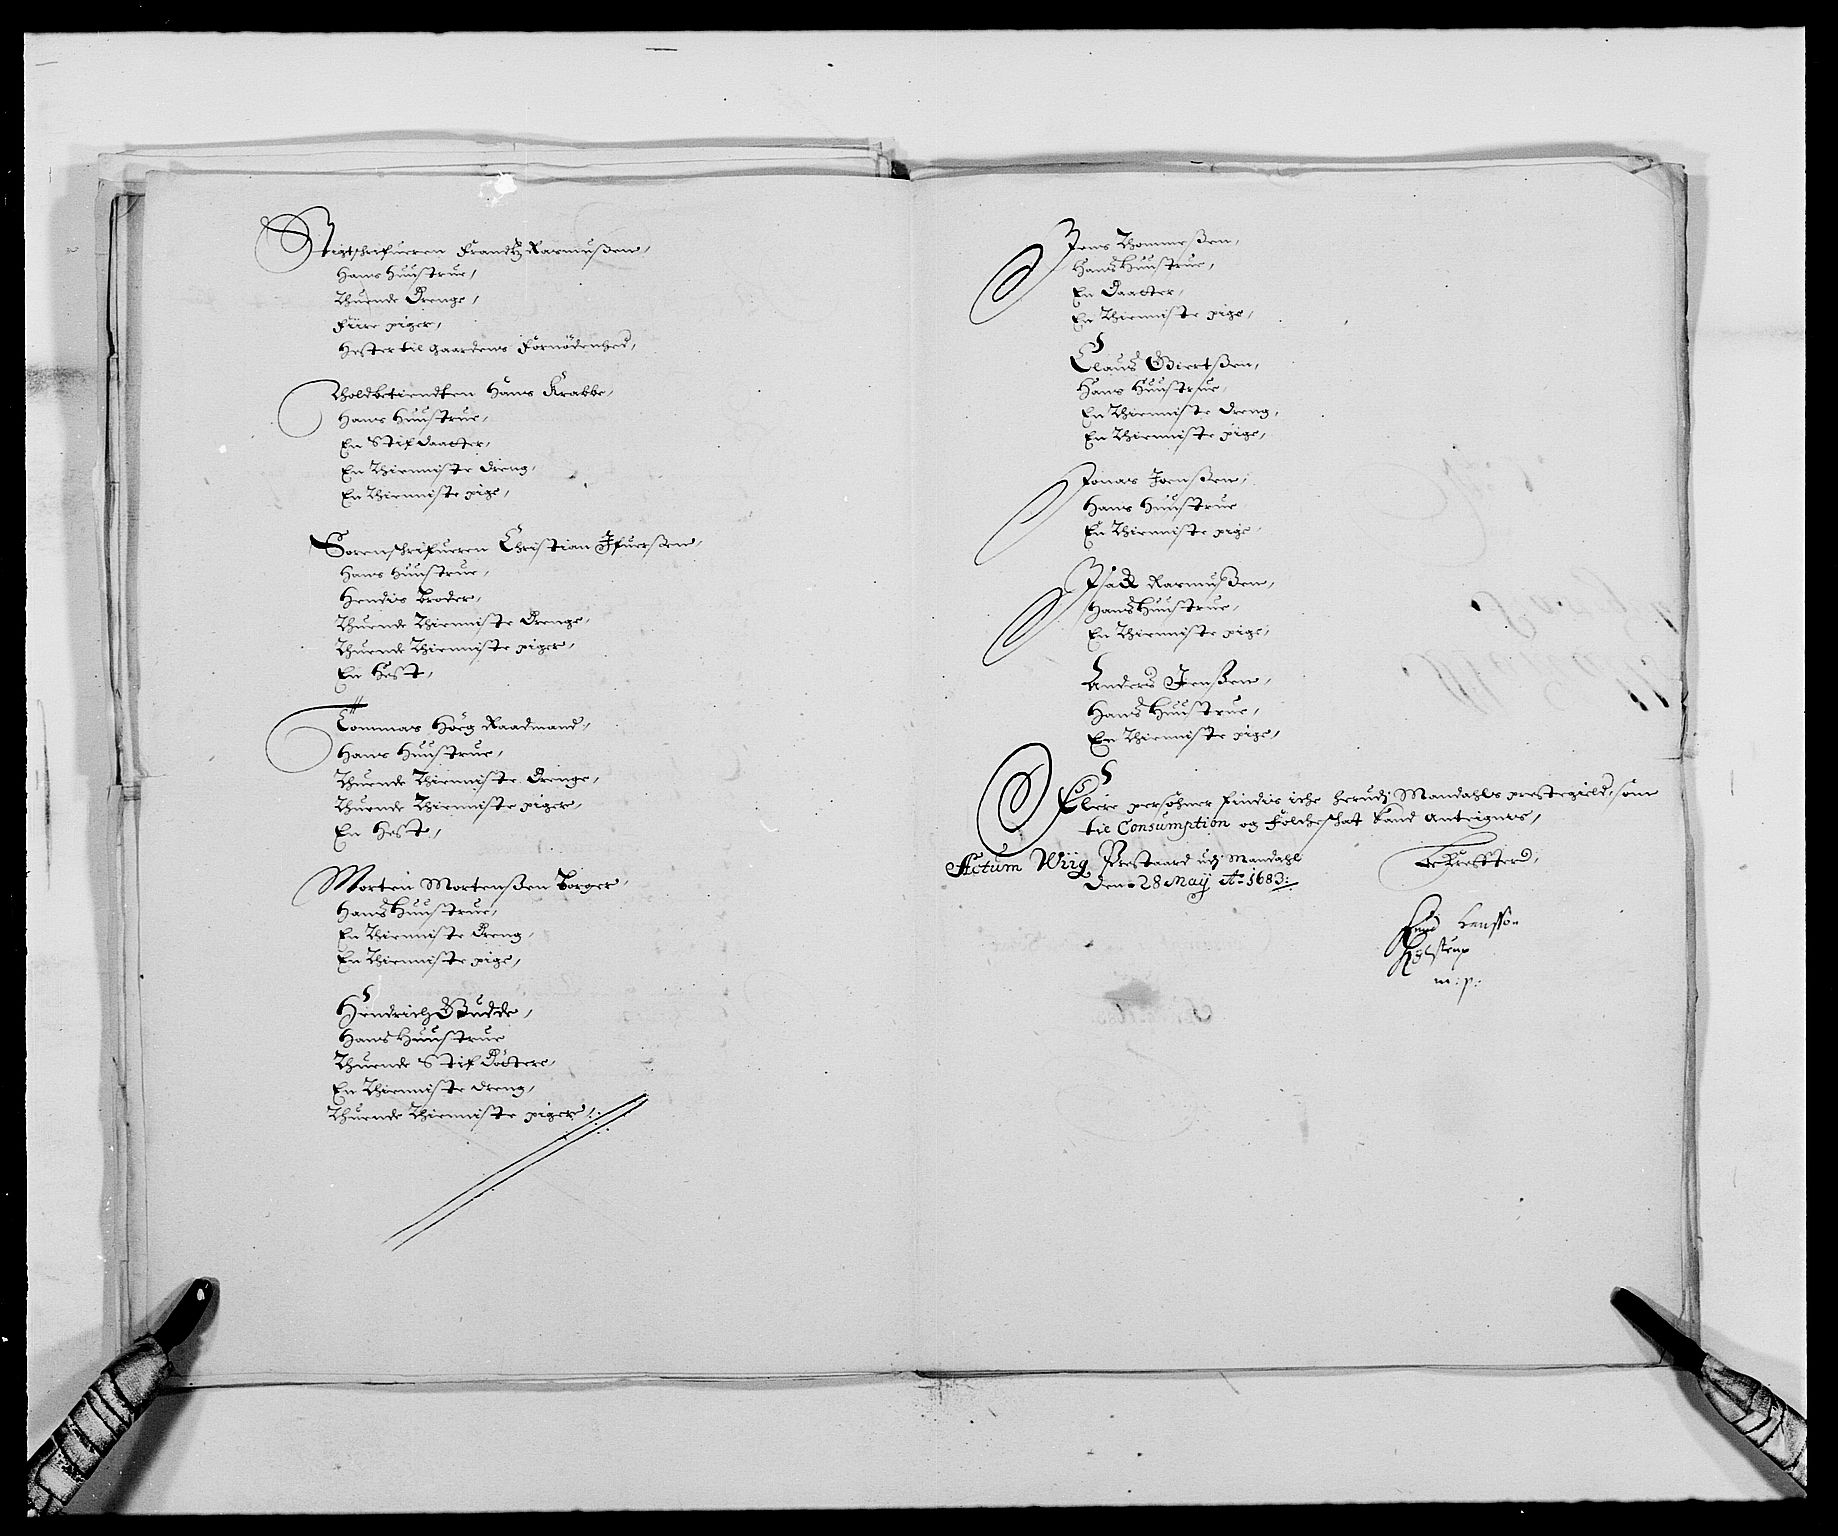 Stigtschrifueren Frandtz Rasmussen,
Hans Huustrue,
Thuende Drenge,
Fiire piger,
Hester til gaardens Fornödenhed,
Tholdbetiendten Hans Krabbe,
Hans Huustrue,
En Stifdaatter,
En Thienniste dreng,
En Thienniste pige,
Sorenschrifueren Christian Ifuerssen,
Hans Huustrue,
Hendis Broder,
Thuende Thienniste Drenge,
Thuende Thienniste piger,
En Hest,
Tommas Höeg Raadmand,
Hans Huustrue,
Thuende Thienniste Drenge,
Thuende Thienniste piger,
En Hest,
Morten Mortenssen Borger,
Hans Huustrue,
En Thienniste Dreng,
En Thienniste pige,
Hendrich Budde,
Hans Huustrue
Thuende Stif Döttere,
En Thienniste dreng,
Thuende Thienniste piger,
Jens Thommessen,
Hans Huustrue,
En Daatter,
En Thienniste pige,
Claus Giertssen,
Hans Huustrue,
En Thienniste dreng,
En Thienniste pige,
Jonas Joenssen,
Hans Huustrue
En Thienniste pige
Isack Rasmussen,
Hans Huustrue,
En Thienniste pige,
Anders Jenssen,
Hans Huustrue,
En Thienniste pige,
Fleere persohner findis iche herudj Mandahls prestegield, som
til Consumption og Folcheschat kand anteignes,
Actum Wiig Prestgaard udj Mandahl
Den 28 Maij Ao 1683:
Bekreffterd,
Knud Jenssøn
m: p: